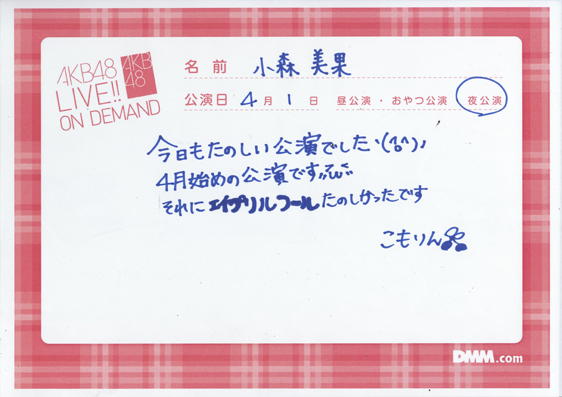 AKB48
LIVE!!
ON DEMAND
AKB
48
名前 小森 美果
公演日 4月1日 昼公演・おやつ公演 夜公演
今日もたのしい公演でした
4月始めの公演です
それにエイプリルフールたのしかったです
こもりん
DMM.com